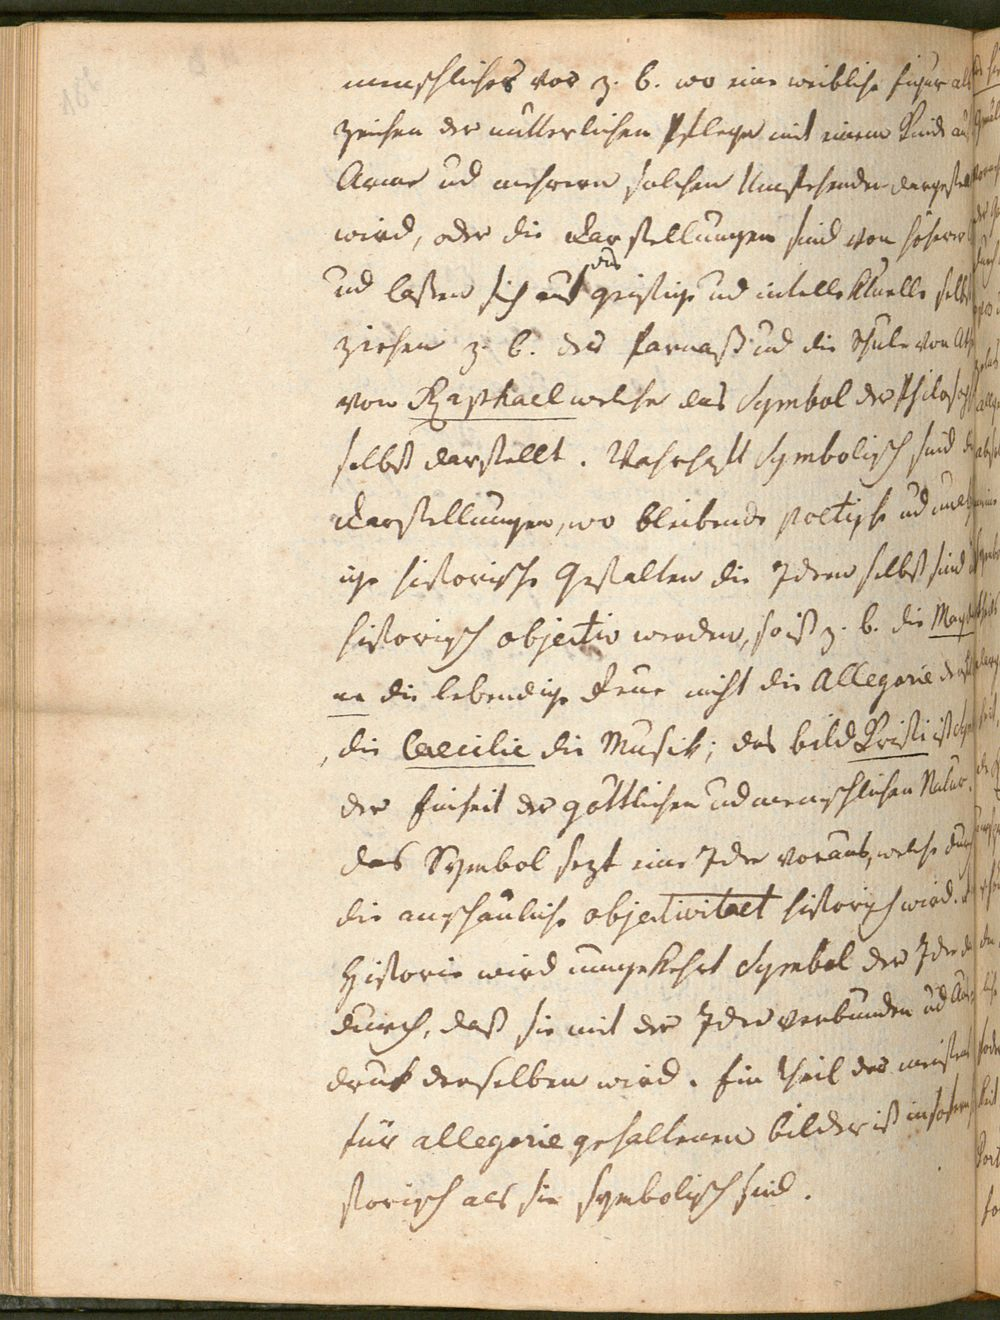 menschliches vor z. b. wo eine weibliche figur als
zeichen der mütterlichen Pflege mit einem Kinde auf
Arme ud mehrern solchen Umstehenden dargestellt
wird, oder die Darstellungen sind von höherer
das
ud lassen sich auf geistige ud intellektuelle selbst
ziehen z. b. der Parnaß ud die Schule von Ath
von Raphael welche das Symbol der Philosoph
selbst darstellt. Wahrhaft Symbolisch sind d
Darstellungen, wo bleibende poetische ud
ige historische Gestalten die Ideen selbst sind
historisch objectiv werden, so ist z. b. die Magdal
en die lebendige Reue nicht die Allegorie der
, die Caecilie die Musik; das bild Kristi ist Sym
der Einheit der göttlichen ud menschlichen Natur.
das Symbol sezt eine Idee voraus, welche durch
die anschauliche objectivitaet historisch wird.
Historie wird umgekehrt Symbol der Idee da
durch, daß sie mit der Idee verbunden ud Aus
druk derselben wird. Ein theil der meistens
für allegorie gehaltenen bilder ist insofern
storisch als sie symbolisch sind.